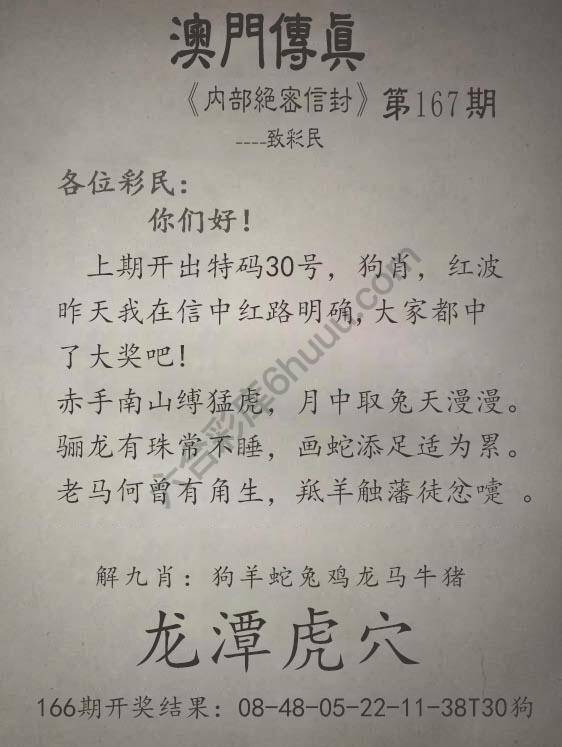 澳門傳真
《内部絕密信封》第167期
----致彩民
各位彩民：
你们好！
上期开出特码30号，狗肖，红波
昨天我在信中红路明确,大家都中
了大奖吧！
赤手南山缚猛虎，月中取兔天漫漫。
骊龙有珠常不睡，画蛇添足适为累。
老马何曾有角生，羝羊触藩徒忿嚏。
解九肖：狗羊蛇兔鸡龙马牛猪
龙潭虎穴
166期开奖结果：08-48-05-22-11-38T30狗
六合彩库6huuu.com